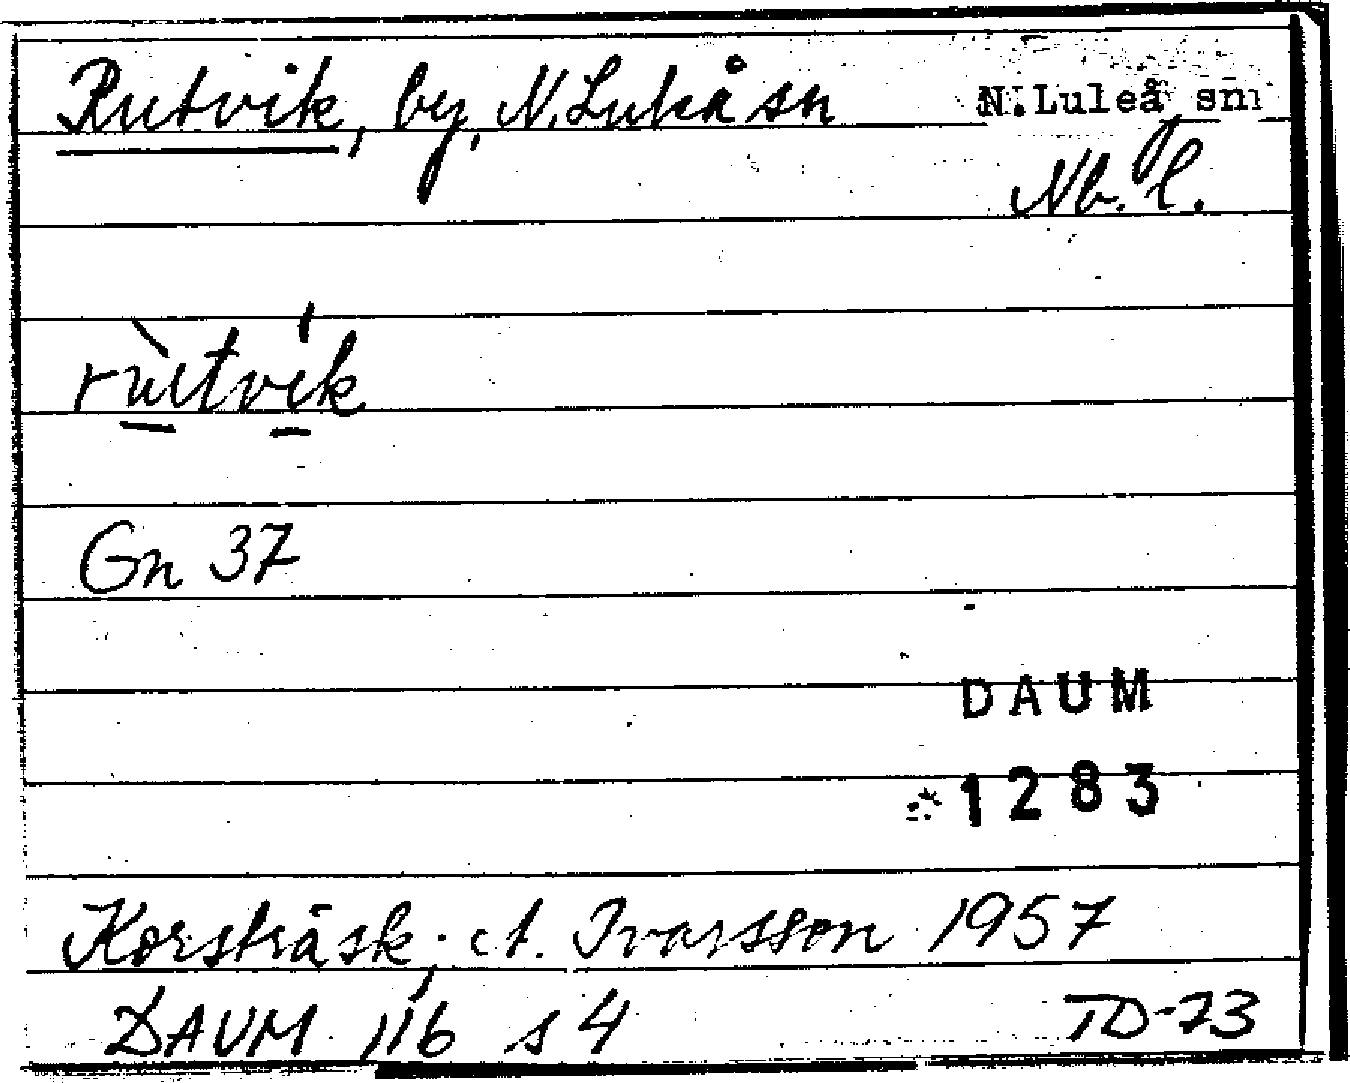 Rutvik, by, N. Luleå sn
N.Luleå sn
Nb. l.
rùtvík
Gn 37
DAUM
1283
Korsträsk; A. Ivarsson 1957
DAUM 116 s 4
TD-73